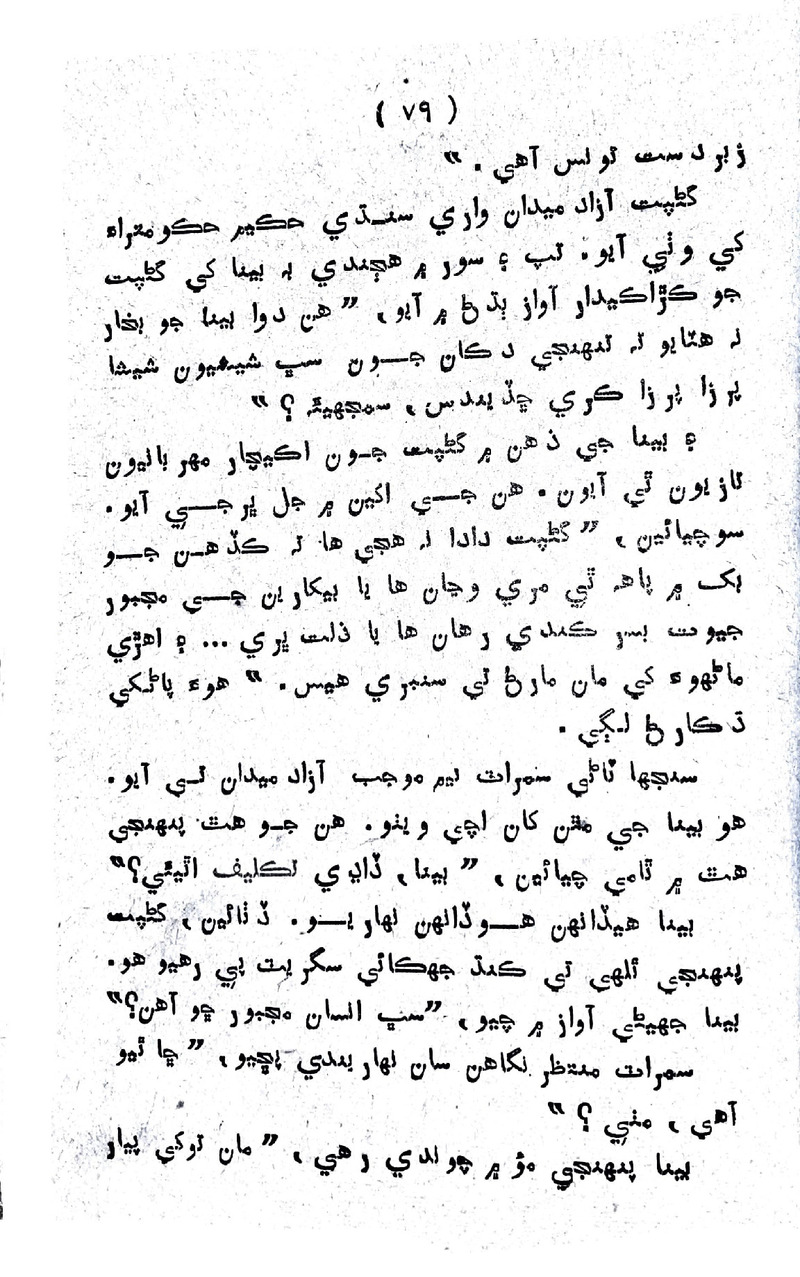 ( ٧٩ )
زبردست ٿو لس آهي . ”
گڻپت آزاد ميدان واري سنڌي حڪيم حڪومتراءِ
کي وٺي آيو . تپ ۽ سور ۾ هجندي بہ بينا کي گڻپت
جو ڪڙاڪيدار آواز ٻڌڻ ۾ آيو، ” هن دوا بينا جو بخار
نہ هٽايو تہ تنهنجي دڪان جــون سڀ شيشيون شيشا
پرزا پرزا ڪري ڇڏيندس، سمجهيئہ ؟ ”
۽ بينا جي ذهن ۾ گڻپت جـون اڪيچار مهربانيون
تازيون ٿي آيون . هن جــي اکين ۾ جل ڀرجــي آيو .
سوچيائين، ” گڻپت دادا نہ هجي ها تہ ڪڏهـن جــو
بک ۾ پاهہ ٿي مري وڃان ها يا بيکارين جــي مجبور
جيوت بسر ڪندي رهان ها يا ذلت ڀري ... ۽ اهڙي
ماڻهوءَ کي مان مارڻ تي سنبري هيس . ” هوءَ پاڻکي
ڌڪارڻ لـڳي .
سنجها ٽاڻي سمرات نيم موجب آزاد ميدان تــي آيو .
هو بينا جي مٿن کان اچي ويٺو . هن جـو هٿ پنهنجي
هٿ ۾ ٿامي چيائين، ” بينا، ڏاڍي تڪليف اٿيئي؟”
بينا هيڏانهن هــوڏانهن نهاريــو . ڏٺائين، گڻپت
پنهنجي ٿلهي تي ڪنڌ جهڪائي سگريٽ پي رهيو هو .
بينا جهيڻي آواز ۾ چيو، ”سڀ انسان مجبور ڇو آهن؟”
سمرات منتظر نگاهن سان نهاريندي پڇيو، ” ڇا ٿيو
آهي، مٺي ؟ ”
بينا پنهنجي مؤ ۾ چوندي رهي، ” مان توکي پيار